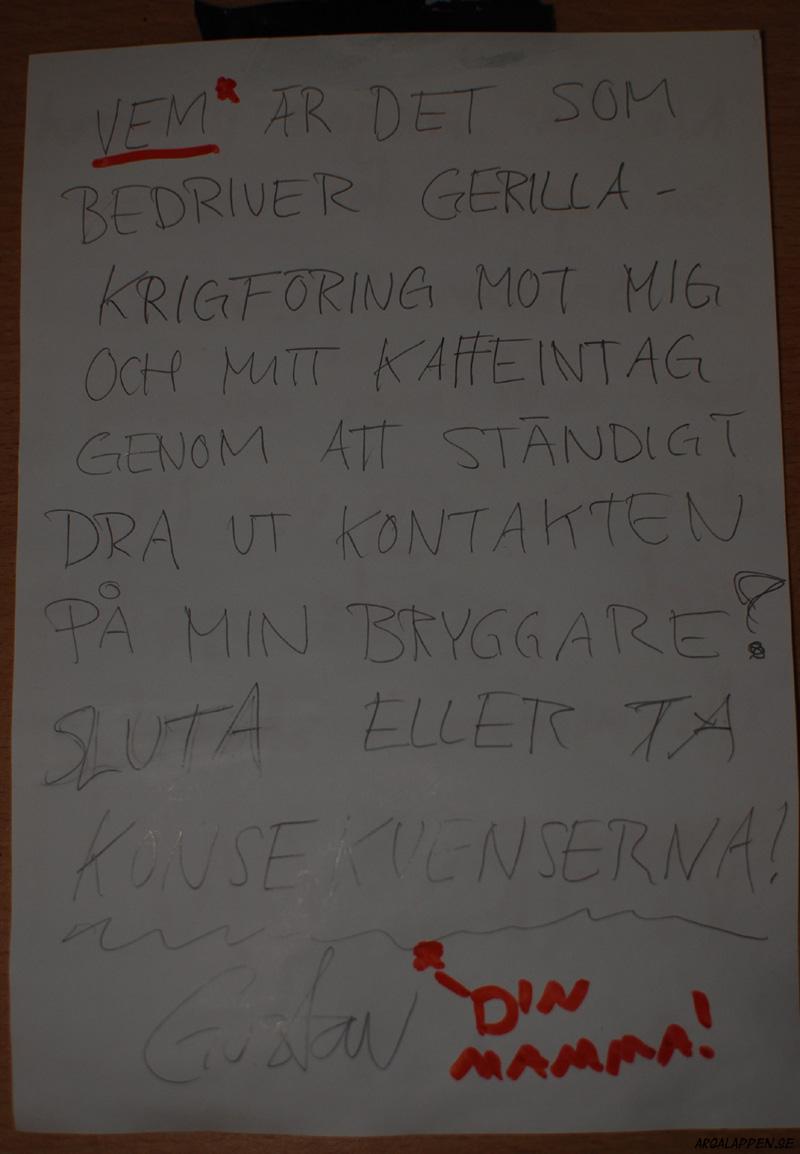 VEM* ÄR DET SOM
BEDRIVER GERILLA-
KRIGFÖRING MOT MIG
OCH MITT KAFFEINTAG
GENOM ATT STÄNDIGT
DRA UT KONTAKTEN
PÅ MIN BRYGGARE?
SLUTA ELLER TA
KONSEKVENSERNA!
Gustav
* DIN
MAMMA!
ARGALAPPEN.SE